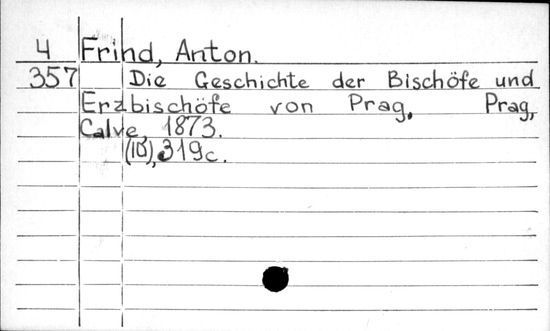 4 Frind, Anton.
357 Die Geschichte der Bischöfe und
Erzbischöfe von Prag. Prag,
Calve, 1873.
319c.